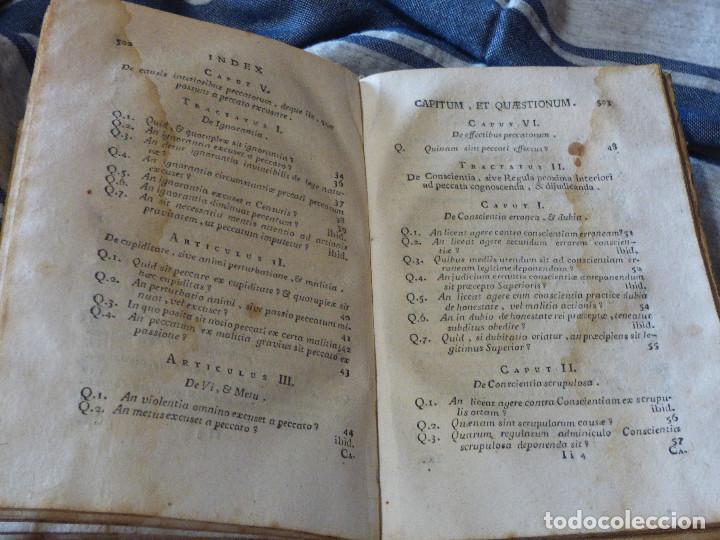 502
INDEX
CAPUT V.
De causis interioribus peccatorum, deque iis, quæ
possunt a peccato excusare.
TRACTATUS I.
De Ignorantia.
Q.1. Quid, & quotuplex sit ignorantia? 34
Q.2. An ignorantia excuset a peccato? 36
An detur ignorantia invincibilis de lege natu-
ræ? 37
Q.4. An ignorantia circumstantiæ peccati peccatum
Q.5. An ignorantia excuset a Censuris? ibid.
Q.6. An ignorantia diminuat peccatum? 39
Q.7. An sit necessitatis mentis attentio ad actionis
pravitatem, ut peccatum imputetur? ibid.
ARTICULUS II.
De cupiditate, sive animi perturbatione, & malitia.
Q.1. Quid sit peccare ex cupiditate? & quotuplex sit
hæc cupiditas? 40
Q.2. An perturbatio animi, sive passio peccatum mi-
nuat, vel excuset? 41
Q.3. In quo posita sit ratio peccati ex certa malitia? 42
Q.4. An peccatum ex malitia gravius sit peccato ex
passione? 43
ARTICULUS III.
De Vi, & Metu.
Q.1. An violentia omnino excuset a peccato? 44
Q.2. An metus excuset a peccato? ibid.
CA-
CAPITUM, ET QUÆSTIONUM. 503
CAPUT VI.
De effectibus peccatorum.
Q. Quinam sint peccati effectus? 48
TRACTATUS II.
De Conscientia, sive Regula proxima interiori
ad peccata cognoscenda, & dijudicanda.
CAPUT I.
De Conscientia erronea, & dubia.
Q.1. An liceat agere contra conscientiam erroneam? 51
Q.2. An liceat agere secundum errorem conscien-
tiæ? ibid.
Q.3. Quibus mediis utendum sit ad conscientiam er-
roneam legitime deponendam? 52
Q.4. An judicium certatis conscientiæ anteponendum
sit præcepto Superioris? ibid.
Q.5. An liceat agere cum conscientia practice dubia
de honestate, vel malitia actionis? 54
Q.6. An in dubio de honestate rei præceptæ, teneatur
subditus obedire? ibid.
Q.7. Quid, si dubitatio oriatur, an præcipiens sit le-
gitimus Superior? 55
CAPUT II.
De Conscientia scrupulosa.
Q.1. An liceat agere contra Conscientiam ex scrupu-
lis ortam? ibid.
Q.2. Quænam sint scrupulorum causæ? 56
Q.3. Quarum regularum adminiculo Conscientia
scrupulosa deponenda sit? 57
Ii 4 CA-
todocoleccion.net